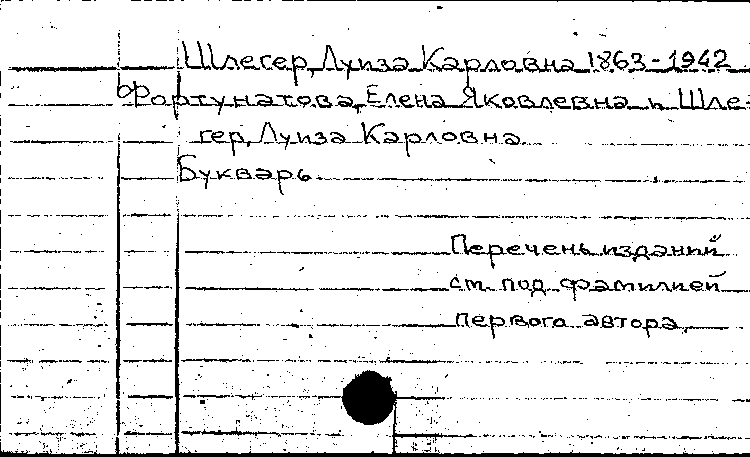 Шлегер, Луиза Карловна 1863-1942
Фортунатова, Елена Яковлевна и Шле-
гер, Луиза Карловна
Букварь
Перечень изданий
см. под фамилией
первого автора